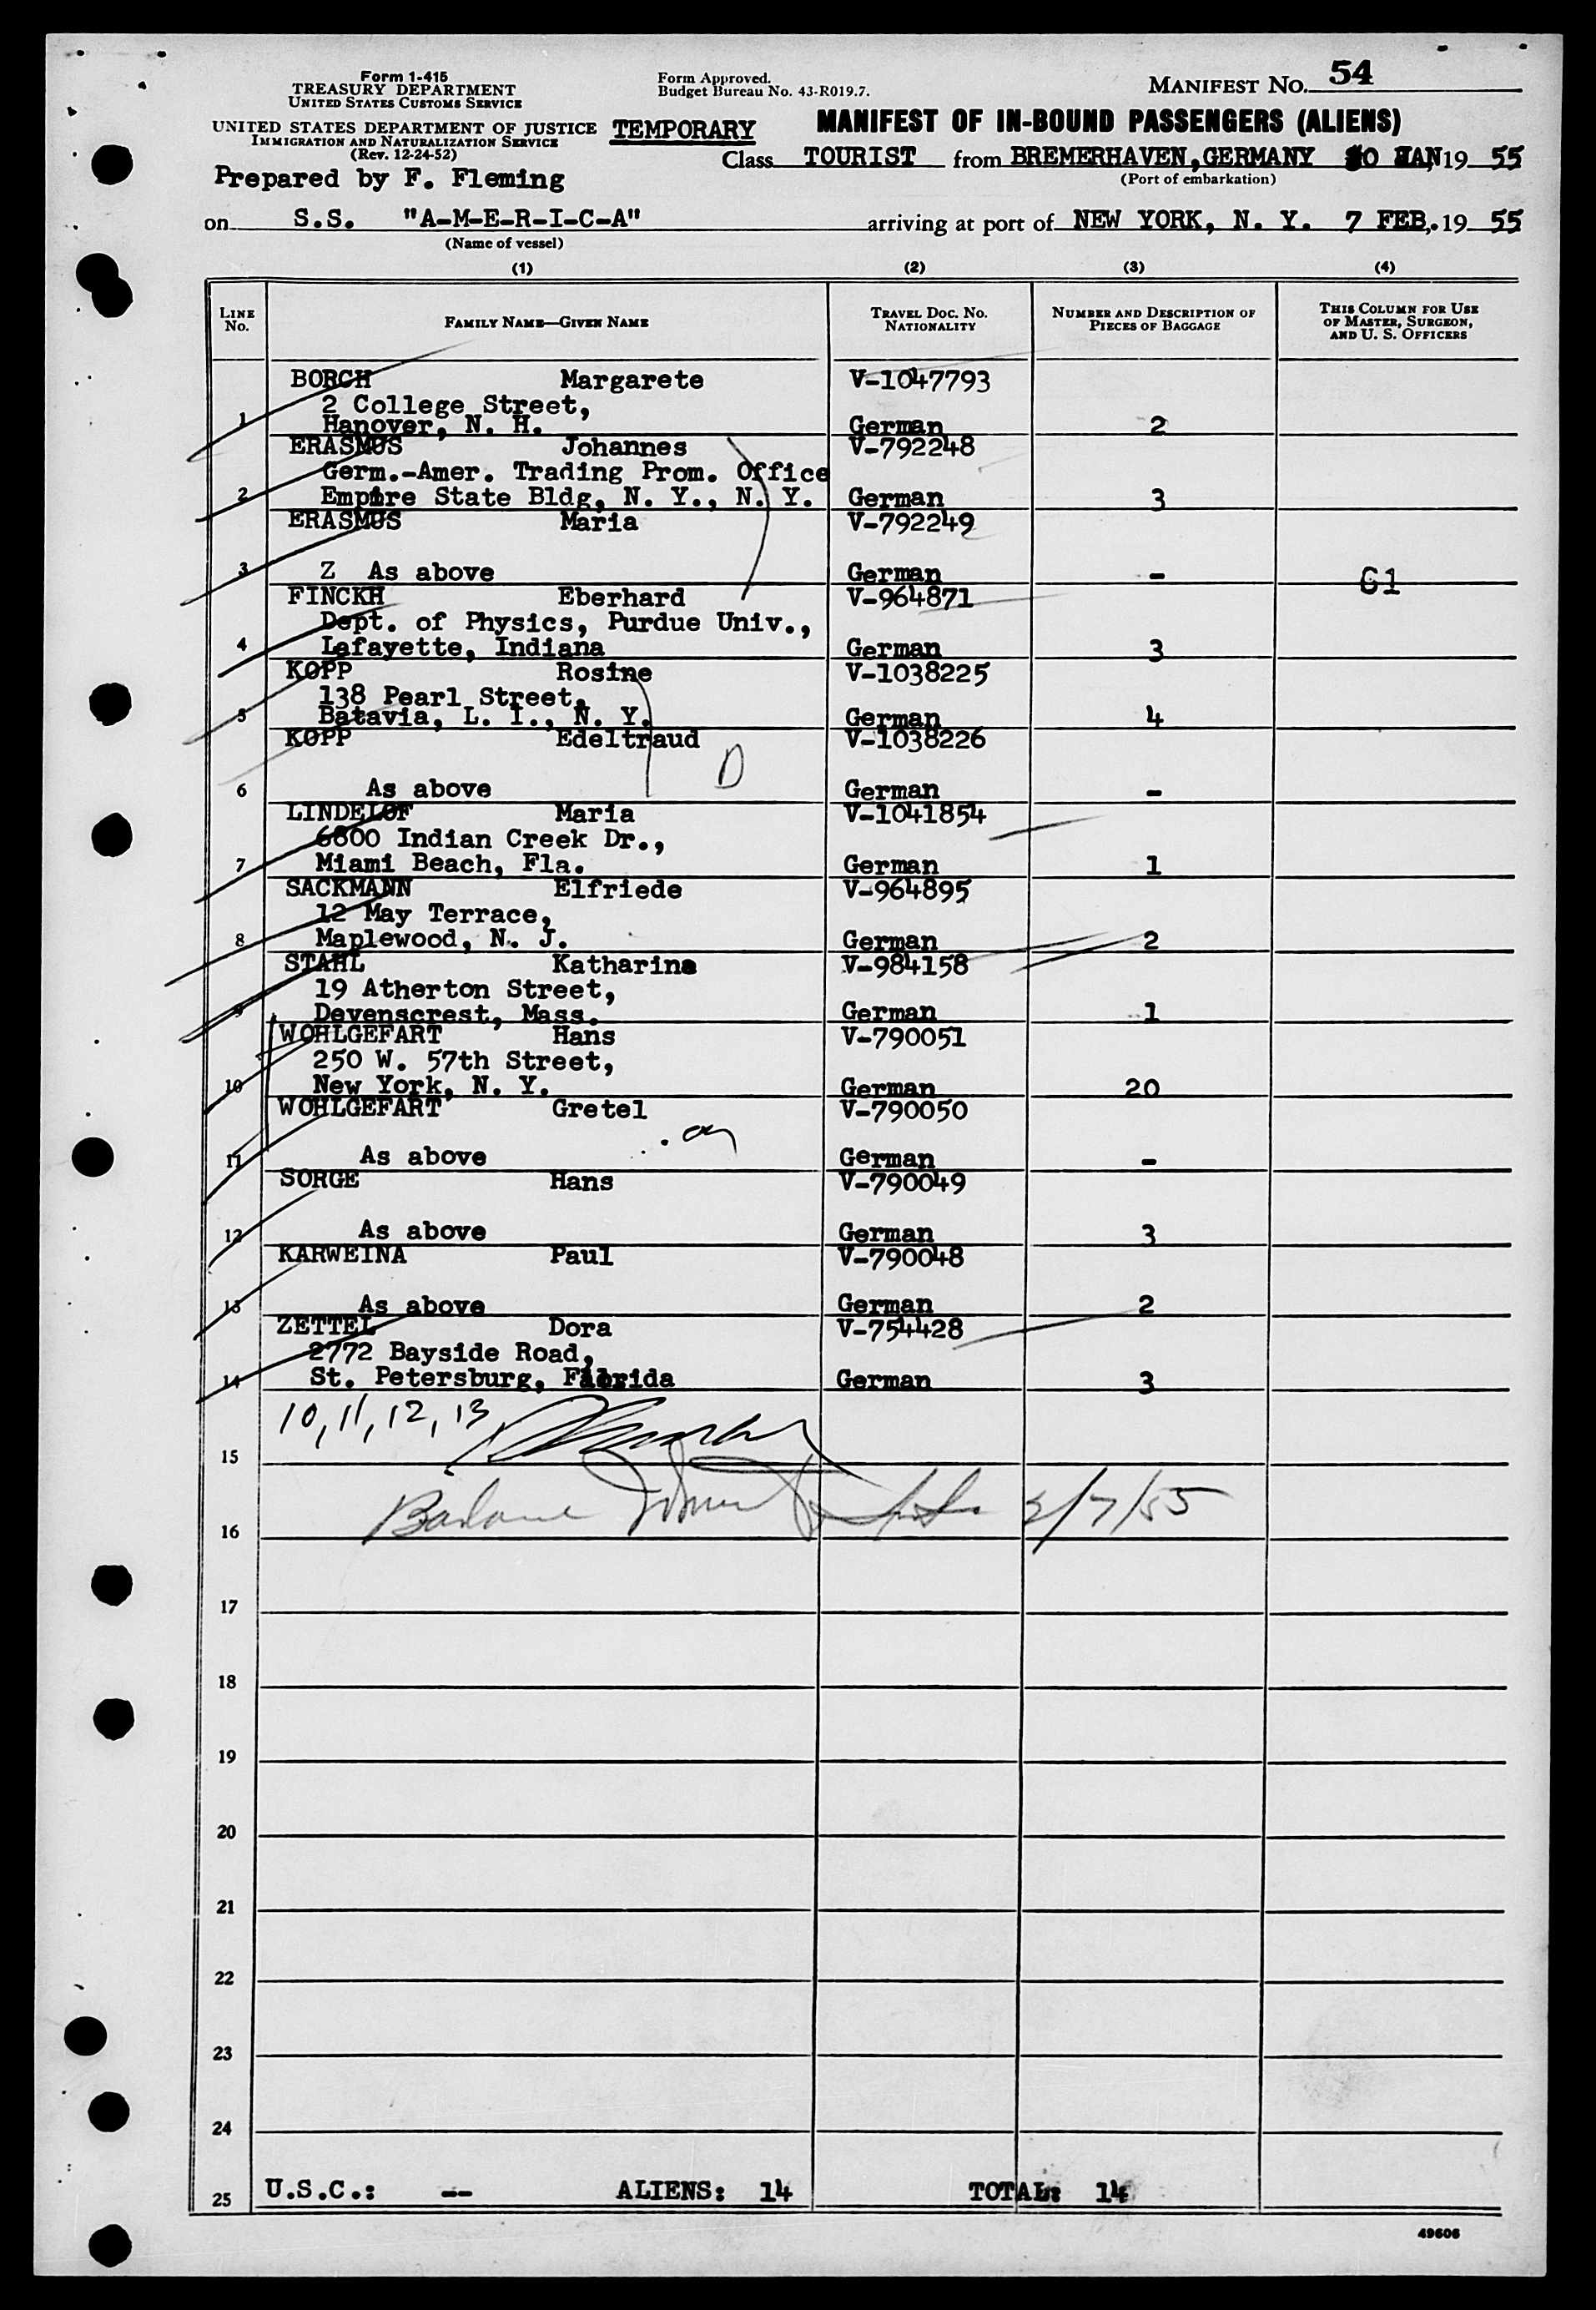 Form 1-415
TREASURY DEPARTMENT
UNITED STATES CUSTOMS SERVICE
UNITED STATES DEPARTMENT OF JUSTICE
IMMIGRATION AND NATURALIZATION SERVICE
(Rev. 12-24-52)
Prepared by F. Fleming
Form Approved.
Budget Bureau No. 43-R019.7.
TEMPORARY
MANIFEST No. 54
MANIFEST OF IN-BOUND PASSENGERS (ALIENS)
Class TOURIST from BREMERHAVEN, GERMANY 30 JAN, 19 55
(Port of embarkation)
on S.S. "A-M-E-R-I-C-A" arriving at port of NEW YORK, N. Y. 7 FEB,. 19 55
(Name of vessel)
(1) (2) (3) (4)
LINE No. FAMILY NAME—GIVEN NAME TRAVEL DOC. NO. NATIONALITY NUMBER AND DESCRIPTION OF PIECES OF BAGGAGE THIS COLUMN FOR USE OF MASTER, SURGEON, AND U. S. OFFICERS
BORCH Margarete V-1047793
2 College Street,
1 Hanover, N. H. German 2
ERASMUS Johannes V-792248
Germ.-Amer. Trading Prom. Office
2 Empire State Bldg, N. Y., N. Y. German 3
ERASMUS Maria V-792249
3 Z As above German - G1
FINCKH Eberhard V-964871
Dept. of Physics, Purdue Univ.,
4 Lafayette, Indiana German 3
KOPP Rosine V-1038225
138 Pearl Street,
5 Batavia, L. I., N. Y. German 4
KOPP Edeltraud V-1038226
D
6 As above German -
LINDELOF Maria V-1041854
6800 Indian Creek Dr.,
7 Miami Beach, Fla. German 1
SACKMANN Elfriede V-964895
12 May Terrace,
8 Maplewood, N. J. German 2
STAHL Katharina V-984158
19 Atherton Street,
9 Devenscrest, Mass. German 1
WOHLGEFART Hans V-790051
250 W. 57th Street,
10 New York, N. Y. German 20
WOHLGEFART Gretel V-790050
11 As above German -
SORGE Hans V-790049
12 As above German 3
KARWEINA Paul V-790048
13 As above German 2
ZETTEL Dora V-754428
2772 Bayside Road,
14 St. Petersburg, Florida German 3
10, 11, 12, 13
15
2/7/55
16
17
18
19
20
21
22
23
24
25 U.S.C.: -- ALIENS: 14 TOTAL: 14
49606